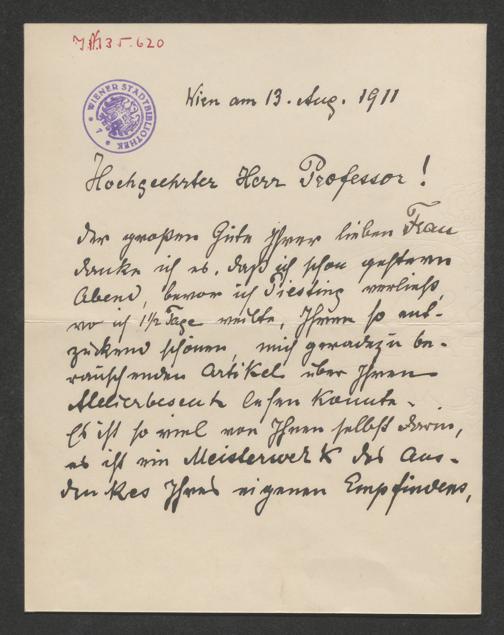 J.N. 35.620
WIENER STADTBIBLIOTHEK
Wien am 13. Aug. 1911
Hochgeehrter Herr Professor!
Der großen Güte Ihrer lieben Frau
danke ich es, daß ich schon gestern
Abend, bevor ich Piesting verließ,
wo ich 1 1/2 Tage weilte, Ihren so ent-
zückend schönen, mich geradezu be-
rauschenden Artikel über Ihren
Atelierbesuch lesen konnte.
Es ist so viel von Ihnen selbst darin,
es ist ein Meisterwerk des Aus-
druckes Ihres eigenen Empfindens,